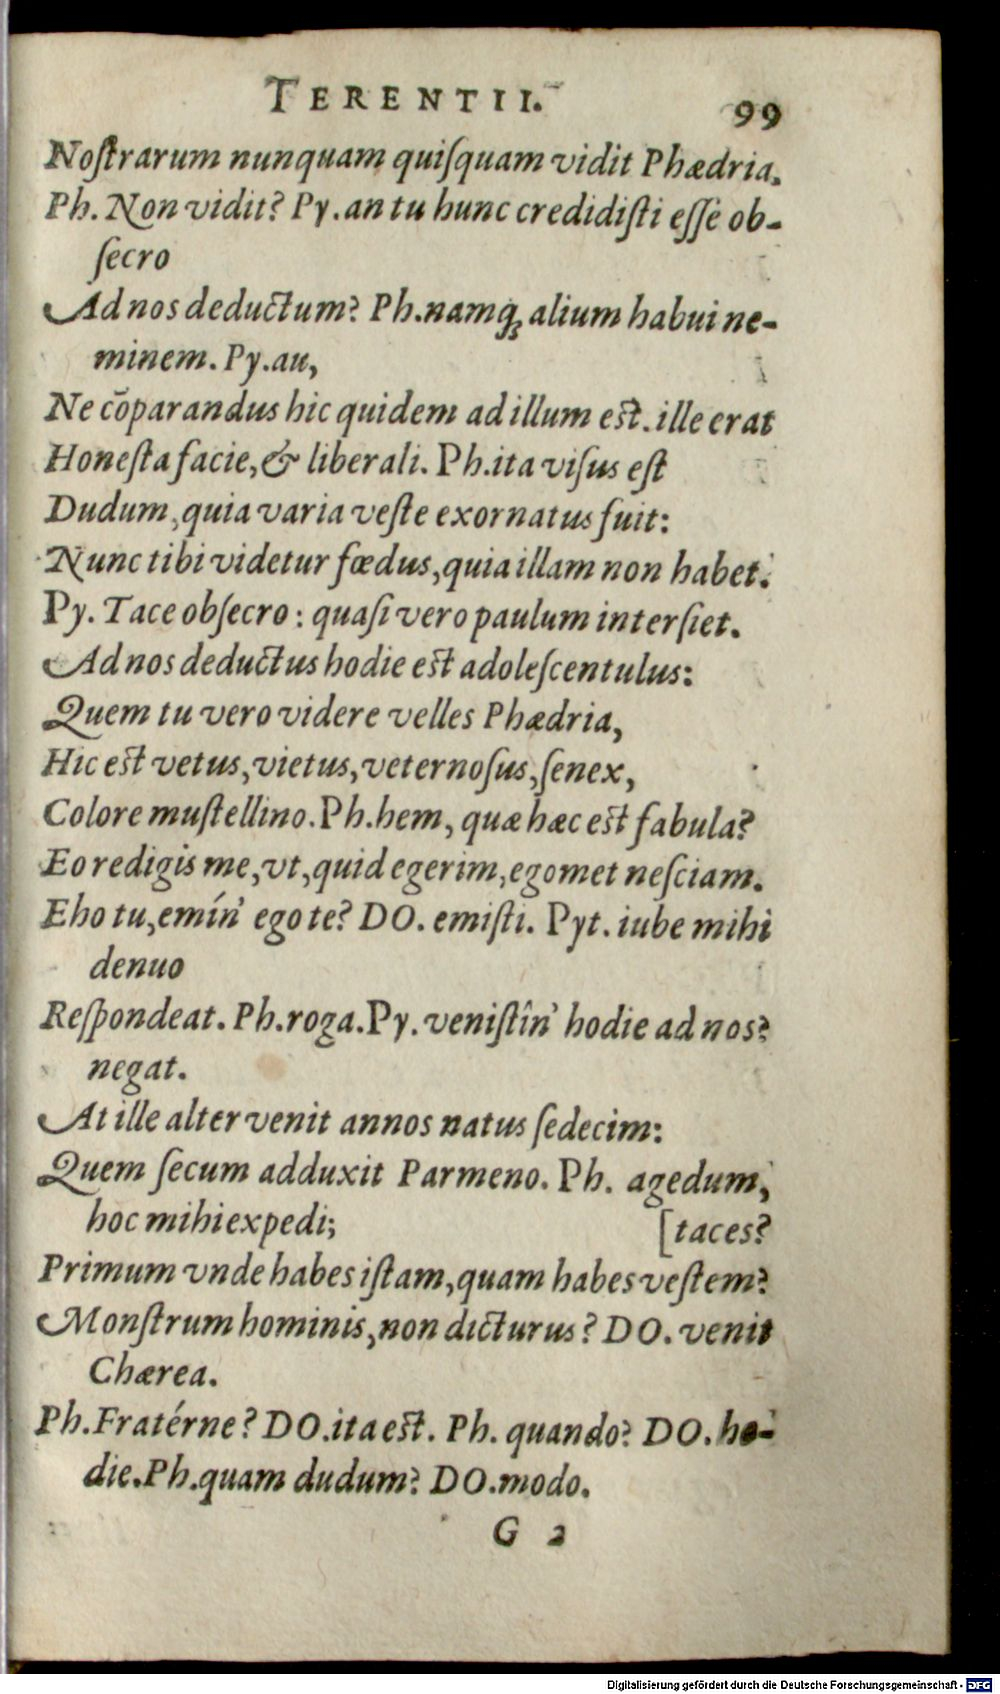 TERENTII. 99
Noſtrarum nunquam quiſquam vidit Phædria.
Ph. Non vidit? Py. an tu hunc credidiſti eſſe ob-
ſecro
Ad nos deductum? Ph. namq́ꝫ alium habui ne-
minem. Py. au,
Ne cōparandus hic quidem ad illum est. ille erat
Honeſta facie, & liberali. Ph. ita viſus eſt
Dudum, quia varia veſte exornatus fuit:
Nunc tibi videtur fœdus, quia illam non habet.
Py. Tace obſecro: quaſi vero paulum interſiet.
Ad nos deductus hodie est adoleſcentulus:
Quem tu vero videre velles Phædria,
Hic est vetus, vietus, veternoſus, ſenex,
Colore muſtellino. Ph. hem, quæ hæc est fabula?
Eo redigis me, vt, quid egerim, egomet neſciam.
Eho tu, emín' ego te? DO. emiſti. Pyt. iube mihi
denuo
Reſpondeat. Ph. roga. Py. veniſtîn' hodie ad nos?
negat.
At ille alter venit annos natus ſedecim:
Quem ſecum adduxit Parmeno. Ph. agedum,
hoc mihi expedi; [taces?
Primum vnde habes iſtam, quam habes veſtem?
Monſtrum hominis, non dicturus? DO. venit
Chærea.
Ph. Fratérne? DO. ita est. Ph. quando? DO. ho-
die. Ph. quam dudum? DO. modo.
G 2
Digitalisierung gefördert durch die Deutsche Forschungsgemeinschaft - DFG